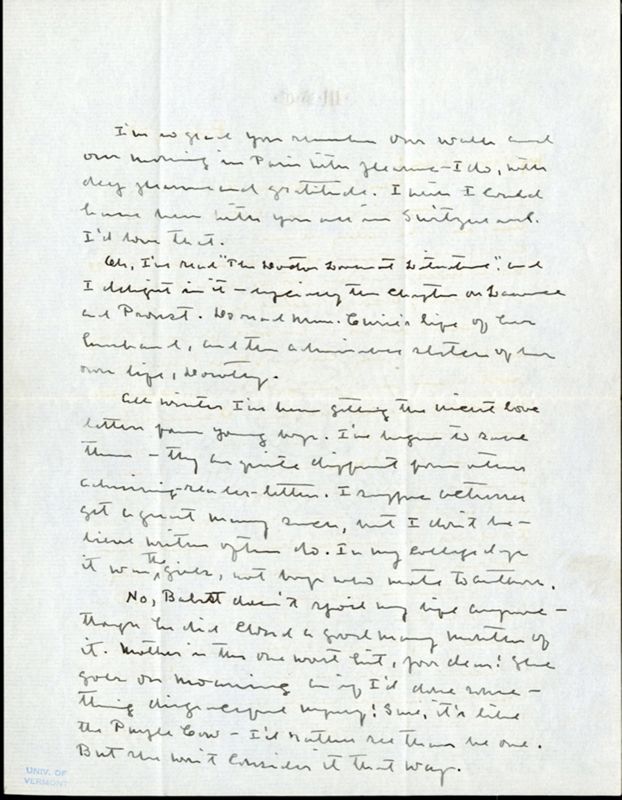 I'm so glad you remember our walk and
our morning in Paris with pleasure – I do, with
deep pleasure and gratitude. I wish I could
have been with you all in Switzerland.
I'd love that.
Oh, I've read "The Doctor Looks at Literature", and
I delight in it – especially the chapters on Lawrence
and Proust. Do read Mme. Curie's life of her
husband, and the admirable sketch of her
own life, Dorothy.
All winter I've been getting the nicest love
letters from young boys. I've begun to save
them – they are quite different from other
admiring-reader-letters. I suppose actresses
get a great many such, but I don't be-
lieve writers often do. In my college days
it was the girls, not boys who wrote to authors.
No, Babbitt doesn't spoil my life anymore –
though he did cloud a good many months of
it. Mother is the one worst hit, poor dear! She
goes on mourning as if I'd done some-
thing disgraceful myself! Sure, it's like
the Purple Cow – I'd rather see than be one.
But she won't consider it that way.
UNIV. OF
VERMONT